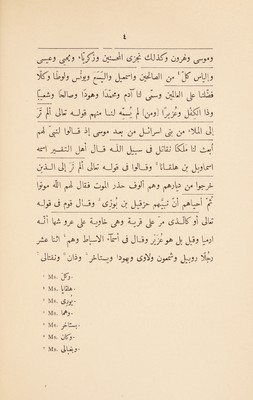 ٤
وموسى وهرون وكذلك نجزى المحسنين وزكريّا، ويحيى وعيسى
وإلياس كلٌّ ¹ من الصالحين واسمعيل واليسع ويونس ولوطا وكلّا
فضّلنا على العالمين وسمّى لنا آدم ومحمّدا وهودا وصالحا وشعيبا
وذا الكفل وعُزيرا (ومن) لم يُسمِّه لنا منهم قوله تعالى ألم تر
إلى الملا، من بنى اسرائل من بعد موسى إذ قالوا لنبىّ لهم
ابعث لنا ملكا نقاتل فى سبيل الله قال أهل التفسير اسمه
اسماويل بن هلقانا ² وقالوا فى قوله تعالى ألم تر إلى الذين
خرجوا من ديارهم وهم ألوف حذر الموت فقال لهم الله موتوا
ثمّ أحياهم أنّ نبيّهم حزقيل بن بُوزى ³ وقال قوم فى قوله
تعالى أو كالذى مرّ على قرية وهى خاوية على عروشها أنّه
ارميا وقيل بل هو عُزَيْر وقال فى أسمآء الاسباط وهم ⁴ اثنا عشر
رجُلا روبيل وشمعون ولاوى ويهودا ويستاخر ⁵ وذان ⁶ ونفتالى ⁷
¹ Ms. وكلّ.
² Ms. هلقايا.
³ Ms. بُورى.
⁴ Ms. وهما.
⁵ Ms. يستاخر.
⁶ Ms. وكان.